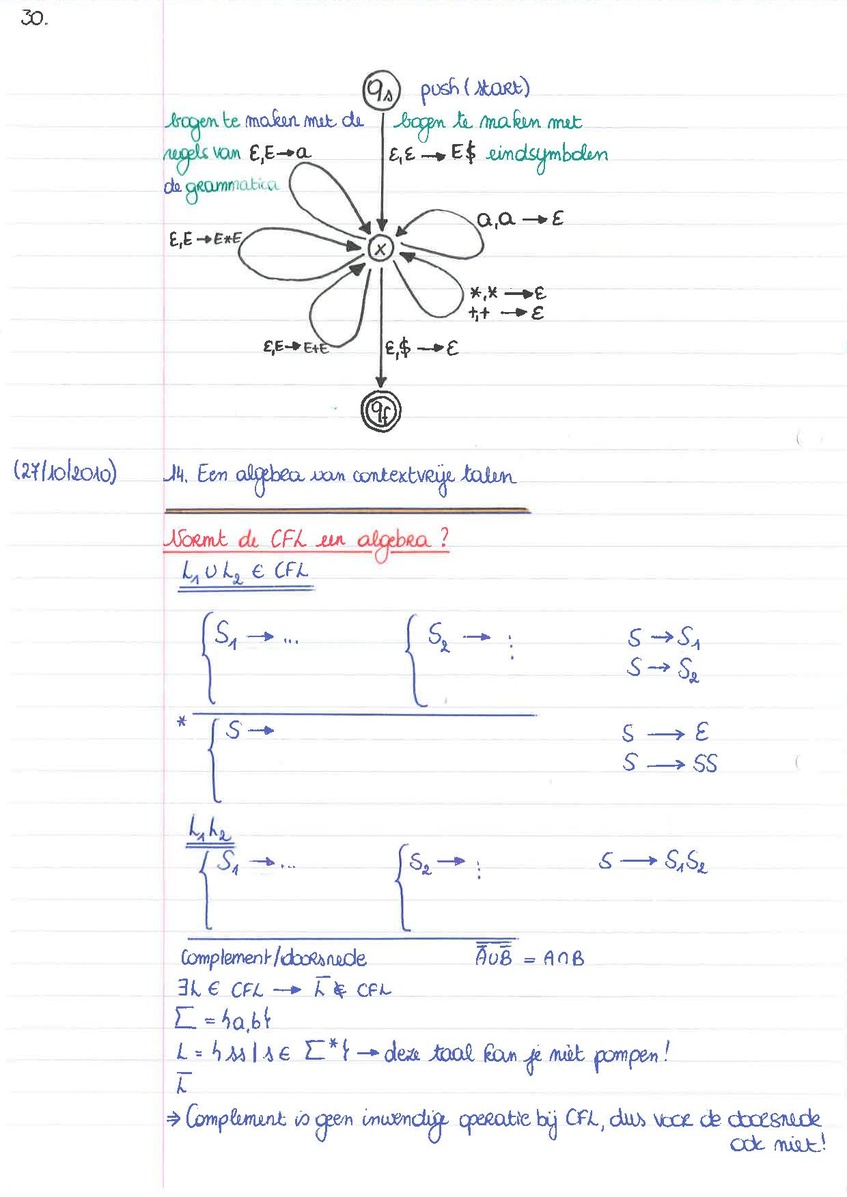 30.
qs push (start)
bogen te maken met de bogen te maken met
regels van ε,E→a ε,ε → E$ eindsymbolen
de grammatica
a,a → ε
ε,E→E*E
x
*,* → ε
+,+ → ε
ε,E→E+E ε,$ → ε
qf
(27/10/2010) 14. Een algebra van contextvrije talen
Vormt de CFL een algebra ?
L₁ ∪ L₂ ∈ CFL
{ S₁ → ... { S₂ → ⋮ S → S₁
S → S₂
* { S → S → ε
S → SS
L₁L₂
{ S₁ → ... { S₂ → ⋮ S → S₁S₂
Complement/doorsnede \overline{A̅∪B̅} = A∩B
∃L ∈ CFL → L̅ ∉ CFL
Σ = {a,b}
L = {ss | s ∈ Σ*} → deze taal kan je niet pompen!
L̅
⇒ Complement is geen inwendige operatie bij CFL, dus voor de doorsnede
ook niet!